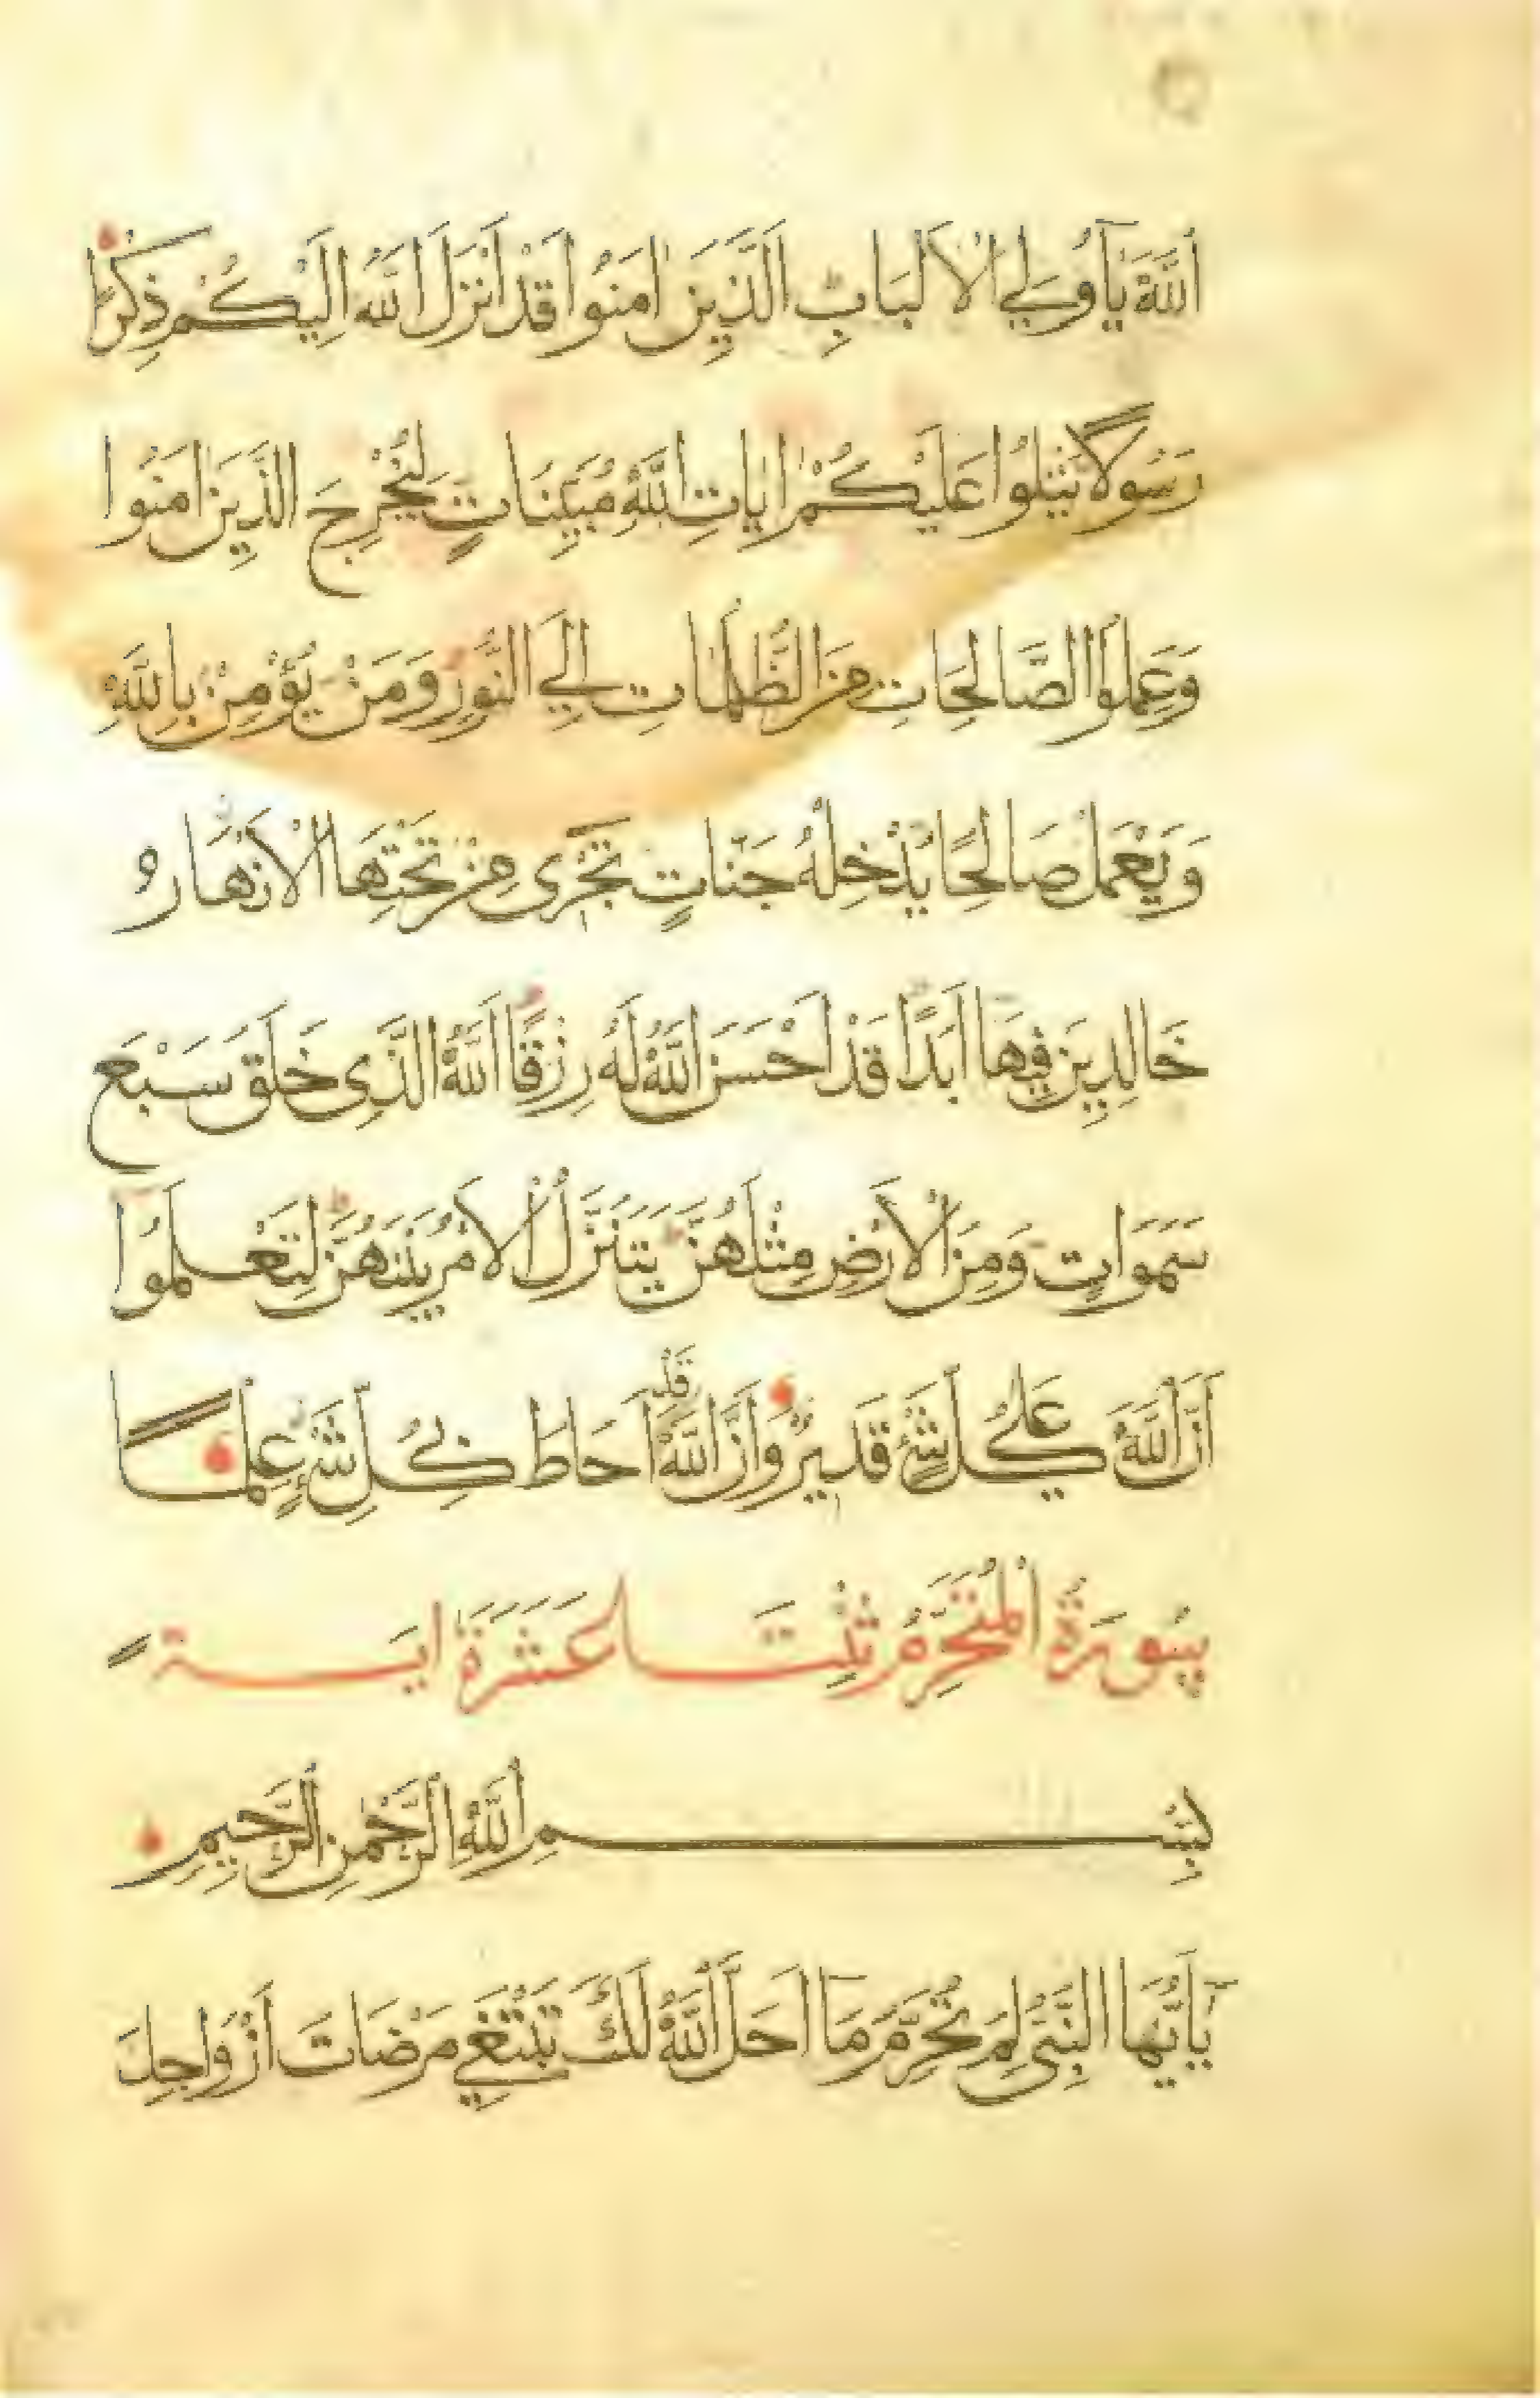 اَللّٰهَ يَا اُولِي الْاَلْبَابِ اَلَّذِينَ اٰمَنُوا قَدْ اَنْزَلَ اللّٰهُ اِلَيْكُمْ ذِكْرًا
رَسُولًا يَتْلُوا عَلَيْكُمْ اٰيَاتِ اللّٰهِ مُبَيِّنَاتٍ لِيُخْرِجَ الَّذِينَ اٰمَنُوا
وَعَمِلُوا الصَّالِحَاتِ مِنَ الظُّلُمَاتِ اِلَي النُّورِ وَمَنْ يُؤْمِنْ بِاللّٰهِ
وَيَعْمَلْ صَالِحًا يُدْخِلْهُ جَنَّاتٍ تَجْرِى مِنْ تَحْتِهَا الْاَنْهَارُ
خَالِدِينَ فِيهَا اَبَدًا قَدْ اَحْسَنَ اللّٰهُ لَهُ رِزْقًا اَللّٰهُ الَّذِى خَلَقَ سَبْعَ
سَمَوَاتٍ وَمِنَ الْاَرْضِ مِثْلَهُنَّ يَتَنَزَّلُ الْاَمْرُ بَيْنَهُنَّ لِتَعْلَمُوا
اَنَّ اللّٰهَ عَلٰي كُلِّ شَيْءٍ قَدِيرٌ وَاَنَّ اللّٰهَ قَدْ اَحَاطَ بِكُلِّ شَيْءٍ عِلْمًا
سُورَةُ الْمُتَحَرِّمُ ثِنْتَا عَشَرَةَ اٰيَة
بِسْمِ اللّٰهِ الرَّحْمٰنِ الرَّحِيمِ
يٓاَيُّهَا النَّبِىُّ لِمَ تُحَرِّمُ مَٓا اَحَلَّ اللّٰهُ لَكَ تَبْتَغِي مَرْضَاتَ اَزْوَاجِكَ